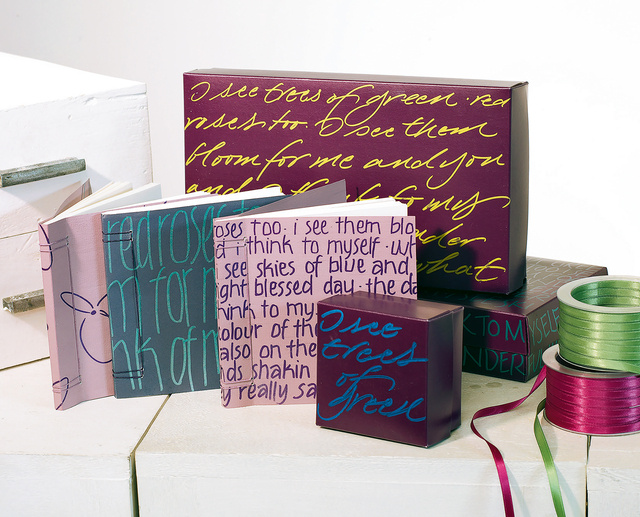 I see trees of green · red
roses too. I see them
bloom for me and you
and
to my
what
red roses
m for m
nk of m
oses too · i see them blo
d i think to myself · wh
see skies of blue and
ght blessed day · the da
ink to my
olour of th
also on the
ds shakin
y really sa
I see
trees
of
green
K TO MYSELF
NDER